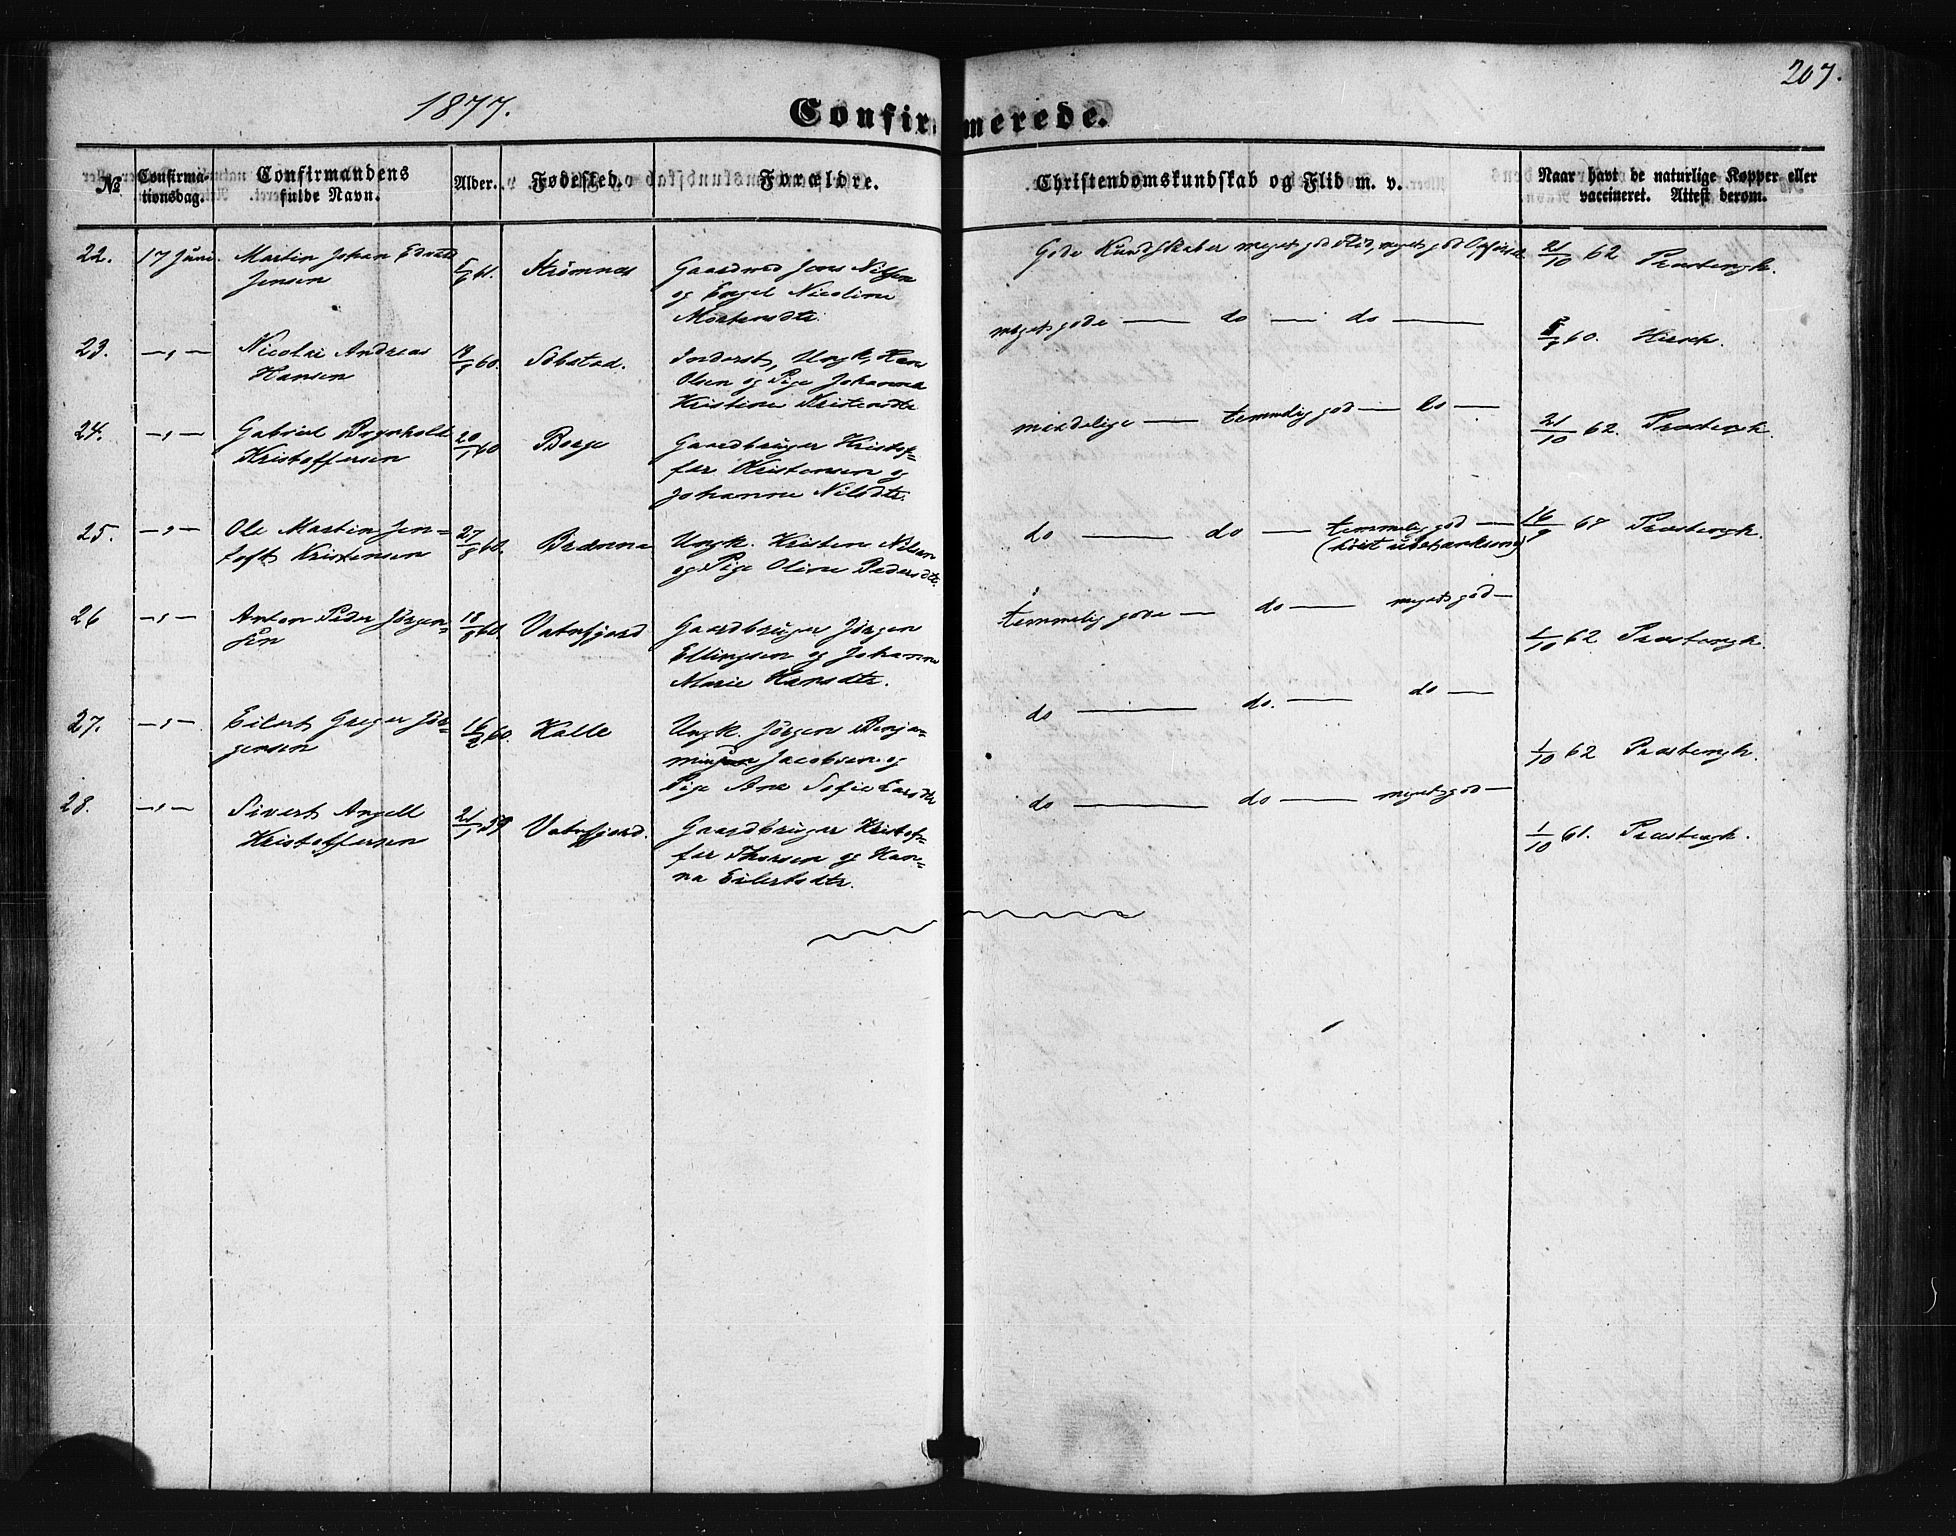 207.
1877.
Confirmerede.
№
Confirma-
tionsdag.
Confirmandens
fulde Navn.
Alder.
Fødested.
Forældre.
Christendomskundskab og Flid m. v.
Naar havt de naturlige Kopper eller
vaccineret. Attest derom.
22. 17 Juni. Martin Johan Edvard 61. Strømnes Gaardmd Jens Nilsen Gode Kundskaber meget god Flid, meget god Opførsel 21/10 62 Præstengh.
Jensen og Engel Nicoline
Mortensdtr.
23. -"- Nicolai Andreas 60. Sobstad. Inderst, Ungk. Hans meget gode — do — do — 60. Hiorth.
Hansen Olsen og Pige Johanna
Kristine Kristensdtr
24. -"- Gabriel Bernhold 20/1 60 Borge Gaardbruger Kristof- mindelige — temmelig god — do — 21/10 62. Præstengh.
Kristoffersen fer Kristensen og
Johanna Nilsdtr.
25. -"- Ole Martin Jen- 27/8 60. Brænna Ungk. Kristen Nilsen do — do — temmelig god — 16/9 67 Præstengh.
toft Kristensen og Pige Oline Pedersdtr.
26 -"- Anton Peder Jørgen- 18/8 60. Vatnfjord Gaardbruger Jørgen temmelig gode — do — meget god — 1/10 62 Præstengh.
sen Ellingsen og Johanna
Marie Hansdtr.
27. -"- Eilert Greger Jør- 16/2 60. Kalle Ungk. Jørgen Benja- do — do. — do — 1/10 62 Præstengh.
gensen min Jacobsen og
Pige Ane Sofie Larsdtr
28. -"- Sivert Angell 21/1 59 Vatnfjord. Gaardbruger Kristof- do — do — meget god — 1/10 61. Præstengh.
Kristoffersen fer Thorsen og Han-
na Eilertsdtr.